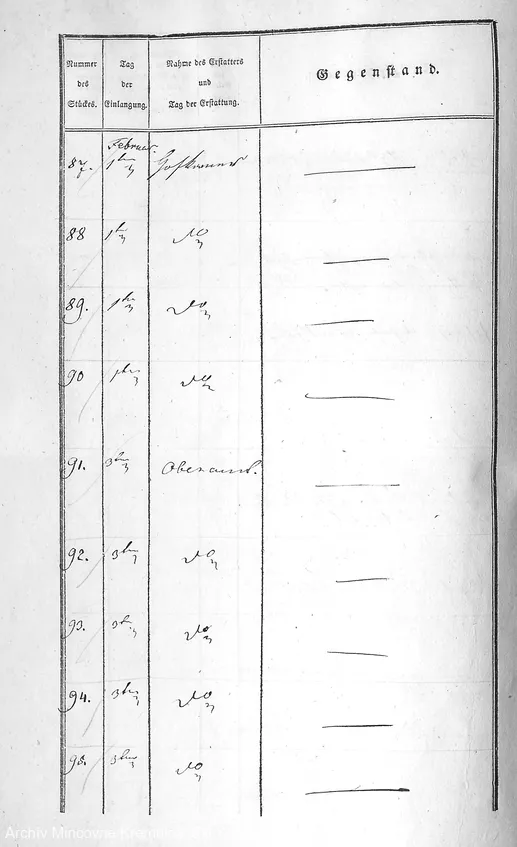 Nummer des Stückes.
Tag der Einlangung.
Nahme des Erstatters und Tag der Erstattung.
Gegenstand.
Februar.
87. 1ten Hofkammer
88 1ten do
89. 1ten do
90 1ten do
91. 3ten Oberamt.
92. 3ten do
93. 3ten do
94. 3ten do
95. 3ten do
Archiv Mincovny Kremnica